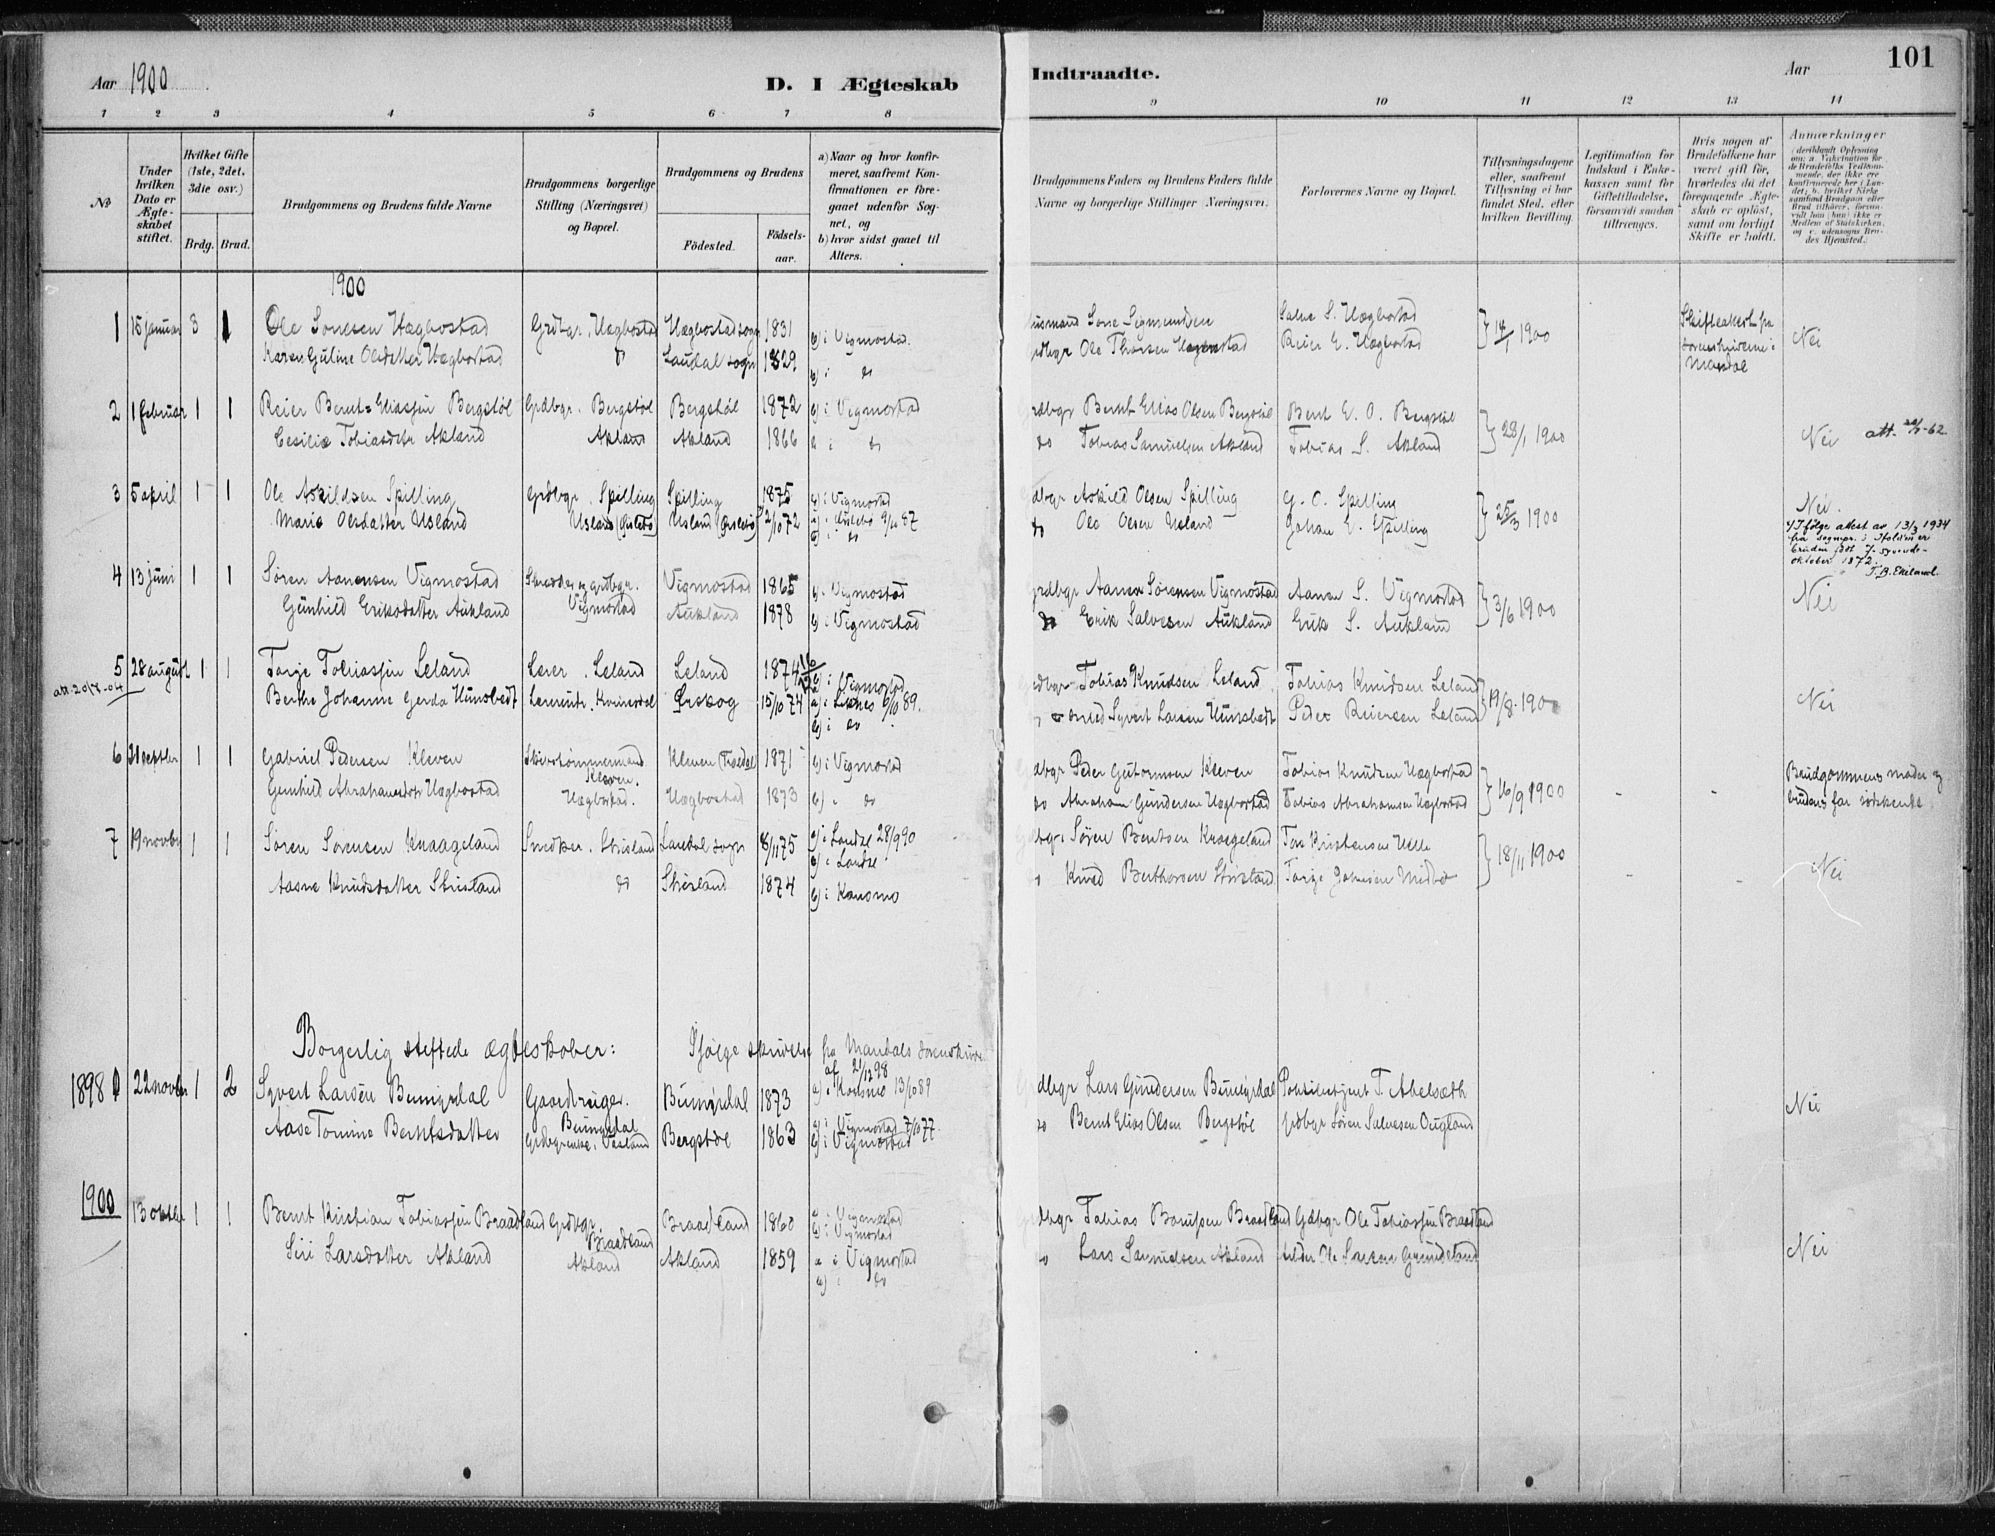 Aar 1900
D. I Ægteskab
Indtraadte.
Aar
101
1 2 3 4 5 6 7 8 9 10 11 12 13 14
№
Under hvilken Dato er Ægteskabet stiftet.
Hvilket Gifte (1ste, 2det, 3die osv.)
Brdg. Brud.
Brudgommens og Brudens fulde Navne
Brudgommens borgerlige Stilling (Næringsvei) og Bopæl.
Brudgommens og Brudens
Födested.
Födsels-aar.
a) Naar og hvor konfirmeret, saafremt Konfirmationen er foregaaet udenfor Sognet, og
b) hvor sidst gaaet til Alters.
Brudgommens Faders og Brudens Faders fulde Navne og borgerlige Stillinger (Næringsvei).
Forlovernes Navne og Bopæl.
Tillysningsdagene eller, saafremt Tillysning ei har fundet Sted, efter hvilken Bevilling.
Legitimation for Indskud i Enkekassen samt for Giftetilladelse, forsaavidt saadan tiltrænges.
Hvis nogen af Brudefolkene har været gift før, hvorledes da det foregaaende Ægteskab er opløst, samt om lovligt Skifte er holdt.
Anmærkninger
1900
1 15 januar 3 1 Ole Sonesen Hægbostad Grdbgr. Hægbostad Hægbostad sogn 1831 b) i Vigmostad.
Husmand Sone Sigmundsen Salve S. Hægbostad 14/1 1900 Skifteakert fra Nei
Karen Guline Olsdatter Hægbostad do Laudal sogn 1829 b) i do
Grdbgr Ole Thorsen Reier E. Hægbostad sorenskriveren i Mandal
2 1 februar 1 1 Reier Bernt Eliassen Bergstøl Grdbgr. Bergstøl Bergstøl 1872 b) i Vigmostad
Grdbgr Bernt Elias Olsen Bergstøl Bernt E. O. Bergstøl 28/1 1900
Cesilie Tobiasdtr Akland Akland Akland 1866 i do
do Tobias Samuelsen Akland Tobias S. Akland Nei att.
3 5 april 1 1 Ole Askildsen Spilling Grdbgr. Spilling Spilling 1875 b) i Vigmostad
Grdbgr Askild Olsen Spilling G. O. Spilling 25/3 1900 Nei.
Marie Olsdatter Usland Usland (Øislebø) Usland (Øislebø) 2/10 72 a) i Øislebø 9/10 87
b) i do
do Ole Olsen Usland Johan E. Spilling
Ifølge attest av 13/3 1934
fra sognpr. i Holum er
bruden født 7. syvende-
oktober 1872.
T. B. Eikeland.
4 13 juni 1 1 Søren Aanensen Vigmostad Skredder og grdbgr. Vigmostad Vigmostad 1865 b) i Vigmostad
Grdbgr Aanen Sørensen Vigmostad Aanen S. Vigmostad 3/6 1900 Nei
Gunhild Eriksdatter Aukland Aukland 1878 b) i Vigmostad
do Erik Salvesen Aukland Erik S. Aukland
5 28 august 1 1 Tarje Tobiassen Leland Lærer. Leland Leland 1874 b) i Vigmostad
Grdbgr Tobias Knudsen Leland Tobias Knudsen Leland 19/8. 1900 Nei
Berthe Johanne Gerda Hunsbedt Kvinesdal Ørskog 15/10 74 a) i Liknes 6/10 89.
b) i do
Syvert Larsen Hunsbedt Peder Reiersen Leland
6 21 septbr 1 1 Gabriel Pedersen Kleven Skibstømmermand Kleven. Kleven 1871 b) i Vigmostad
Grdbgr Peder Gutormsen Kleven Tobias Knudsen Hægbostad 16/9 1900 Brudgommens moder og
Gunhild Abrahamsdtr Hægbostad Hægbostad. Hægbostad 1873 b) i do
do Abraham Gundersen Hægbostad Tobias Abrahamsen Hægbostad brudens far södskende
7 19 novbr 1 1 Søren Sørensen Knaageland Snedker. Stiisland Laudal sogn 8/11 75 a) i Laudal 28/9 90
b) i Laudal
Grdbgr Søren Berntsen Knaageland Kristensen 18/11 1900 Nei
Aasne Knudsdatter Stiisland do Stiisland 1874 b) i Konsmo
Knud Berthorsen Stiisland Tarje
Borgerlig stiftede ægteskaber: Ifølge skrivelse fra Mandals sorenskriver
af 21/12 98
1898 1 22 novbr 1 2 Syvert Larsen Bumyrdal Gaardbruger. Bumyrdal Bumyrdal 1873 a) i Konsmo 13/10 89
Grdbgr Lars Gundersen Bumyrdal Politibetjent T. Abelsæth
Aase Tomine Berntsdatter Grdbgrenke. Bergstøl 1863 a) i Vigmostad 7/10 77.
b) i Vigmostad
do Bernt Elias Olsen Bergstøl grdbgr Søren Salvesen Ougland Nei
1900 13 oktbr 1 1 Bernt Kristian Tobiassen Braadland Grdbgr. Braadland Braadland 1860 a i Vigmostad
b) i Vigmostad
Grdbgr Tobias Braadland Gdbgr Ole Tobiassen Braadland
Siri Larsdatter Akland Akland Akland 1859 a i Vigmostad
b) i do
do Lars Samuelsen Akland Nei